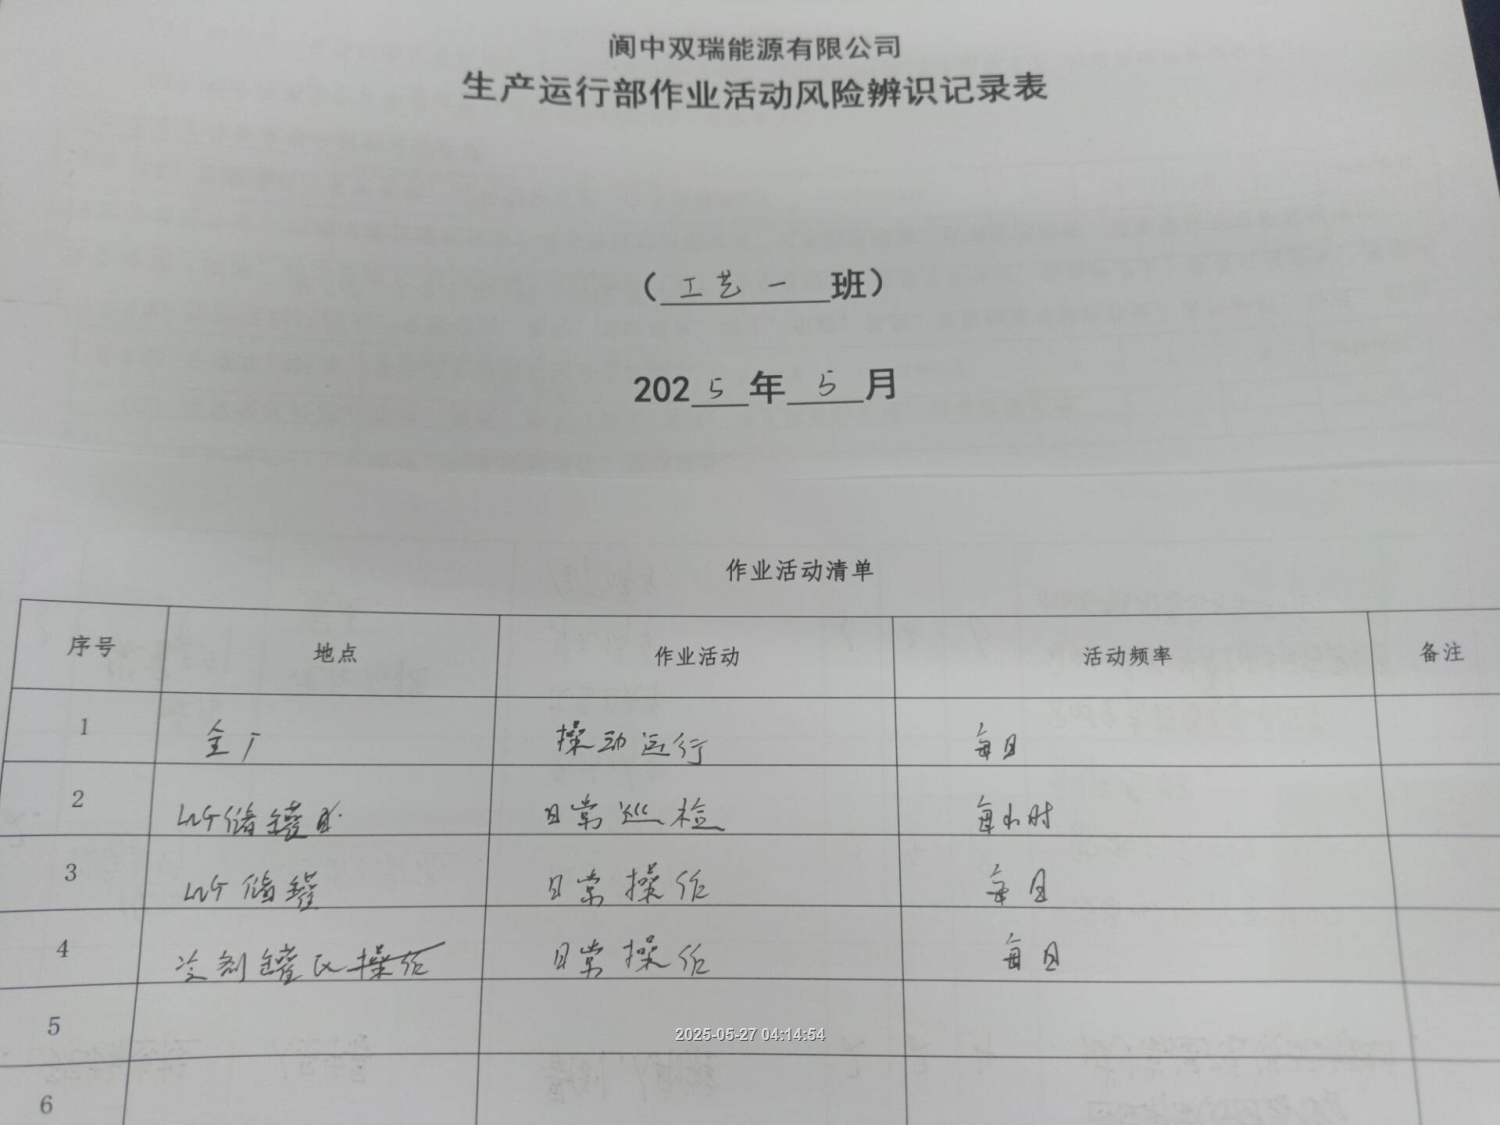 阆中双瑞能源有限公司
生产运行部作业活动风险辨识记录表
（工艺一班）
2025年5月
作业活动清单
序号 地点 作业活动 活动频率 备注
1 全厂 操动运行 每日
2 LNG储罐区 日常巡检 每小时
3 LNG储罐 日常操作 每日
4 冷剂罐区操作 日常操作 每日
5
6
2025-05-27 04:14:54